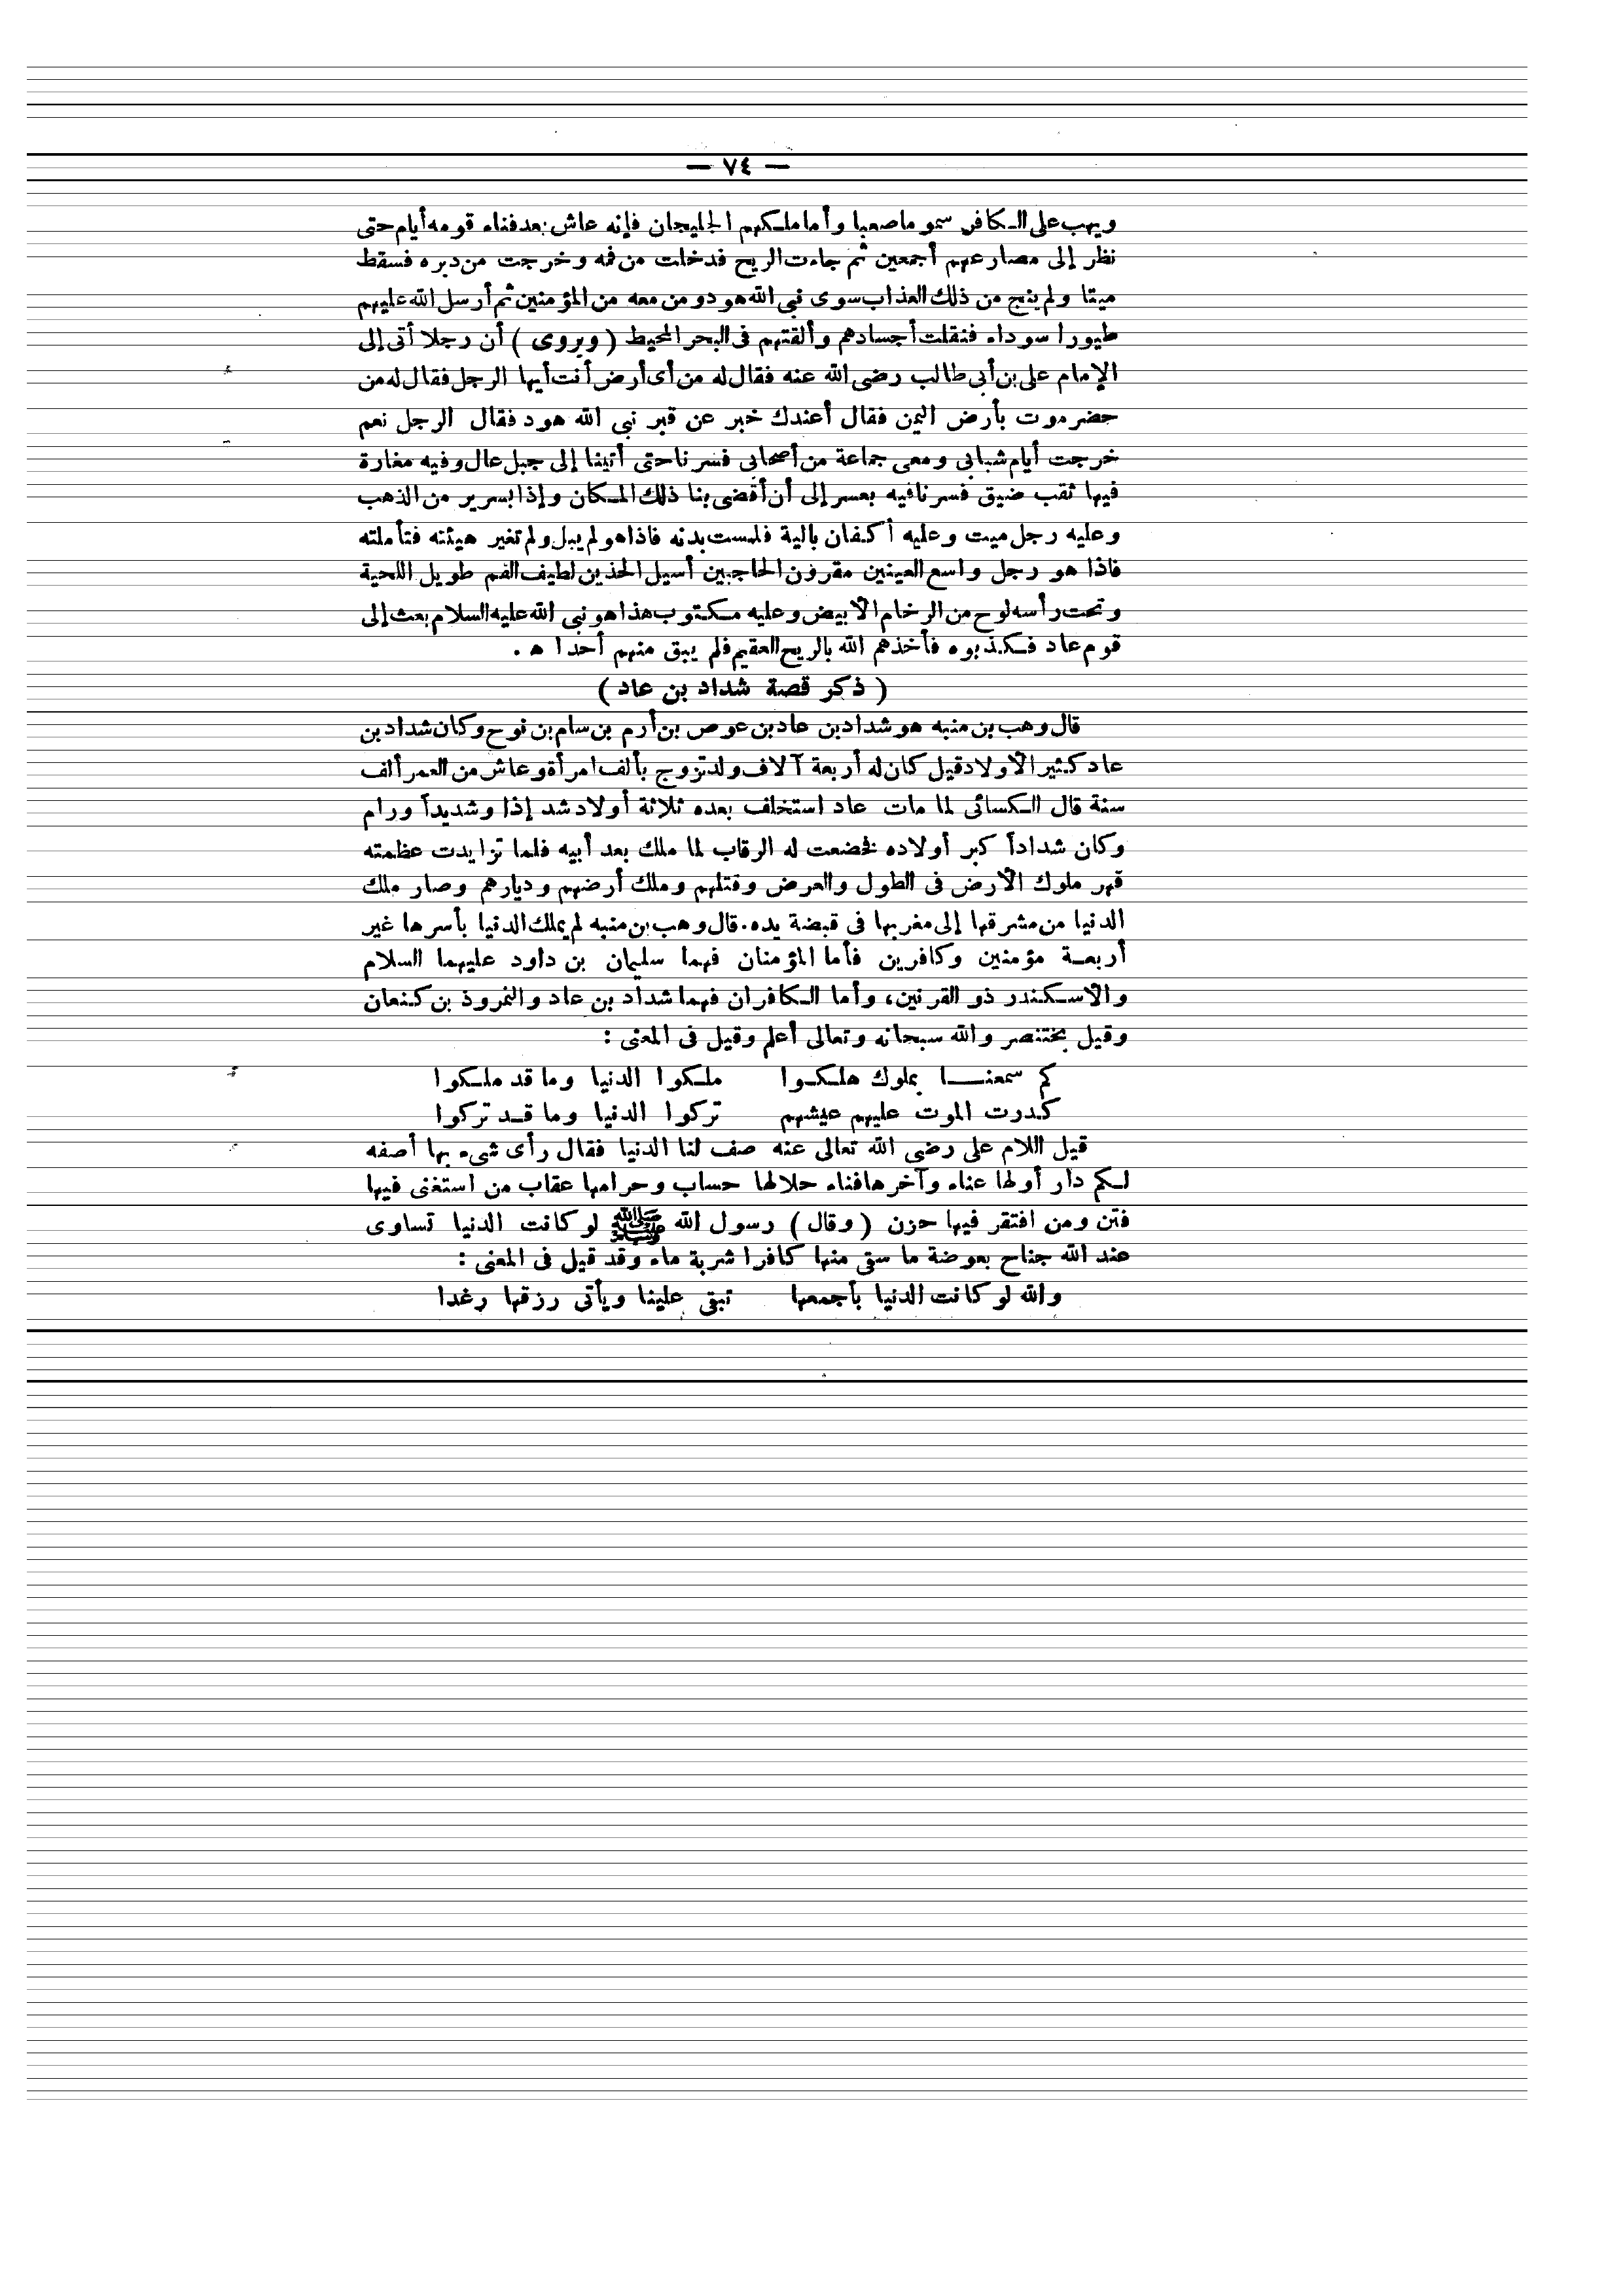 — ٧٤ —
ويهب على الكافر سموما صعبا وأما ملكهم الجليجان فإنه عاش بعد فناء قومه أيام حتى
نظر إلى مصارعهم أجمعين ثم جاءت الريح فدخلت من فمه وخرجت من دبره فسقط
ميتا ولم ينج من ذلك العذاب سوى نبى الله هود ومن معه من المؤمنين ثم أرسل الله عليهم
طيورا سوداء فنقلت أجسادهم وألقتهم فى البحر المحيط ( ويروى ) أن رجلا أتى إلى
الإمام على بن أبى طالب رضى الله عنه فقال له من أى أرض أنت أيها الرجل فقال له من
حضرموت بأرض اليمن فقال أعندك خبر عن قبر نبى الله هود فقال الرجل نعم
خرجت أيام شبابى ومعى جماعة من أصحابى فسرنا حتى أتينا إلى جبل عال وفيه مغارة
فيها ثقب ضيق فسرنا فيه بعسر إلى أن أفضى بنا ذلك المكان وإذا بسرير من الذهب
وعليه رجل ميت وعليه أكفان بالية فلمست بدنه فاذا هو لم يبل ولم تغير هيئته فتأملته
فاذا هو رجل واسع العينين مقرون الحاجبين أسيل الخذين لطيف الفم طويل اللحية
وتحت رأسه لوح من الرخام الأبيض وعليه مكتوب هذا هو نبى الله عليه السلام بعث إلى
قوم عاد فكذبوه فأخذهم الله بالريح العقيم فلم يبق منهم أحدا ه .
( ذكر قصة شداد بن عاد )
قال وهب بن منبه هو شداد بن عاد بن عوص بن أرم بن سام بن نوح وكان شداد بن
عاد كثير الأولاد قيل كان له أربعة آلاف ولد تزوج بألف امرأة وعاش من العمر ألف
سنة قال الكسائى لما مات عاد استخلف بعده ثلاثة أولاد شد إذا وشديداً ورام
وكان شداداً كبر أولاده فخضعت له الرقاب لما ملك بعد أبيه فلما تزايدت عظمته
قهر ملوك الأرض فى الطول والعرض وقتلهم وملك أرضهم وديارهم وصار ملك
الدنيا من مشرقها إلى مغربها فى قبضة يده. قال وهب بن منبه لم يملك الدنيا بأسرها غير
أربعة مؤمنين وكافرين فأما المؤمنان فهما سليمان بن داود عليهما السلام
والأسكندر ذو القرنين، وأما الكافران فهما شداد بن عاد والنمروذ بن كنعان
وقيل بختنصر والله سبحانه وتعالى أعلم وقيل فى المعنى :
كم سمعنا بملوك هلكوا ملكوا الدنيا وما قد ملكوا
كدرت الموت عليهم عيشهم تركوا الدنيا وما قد تركوا
قيل اللام على رضى الله تعالى عنه صف لنا الدنيا فقال رأى شىء بها أصفه
لكم دار أولها عناء وآخرها فناء حلالها حساب وحرامها عقاب من استغنى فيها
فتن ومن افتقر فيها حزن ( وقال ) رسول الله ﷺ لو كانت الدنيا تساوى
عند الله جناح بعوضة ما سقى منها كافرا شربة ماء وقد قيل فى المعنى :
والله لو كانت الدنيا بأجمعها تبقى علينا ويأتى رزقها رغدا